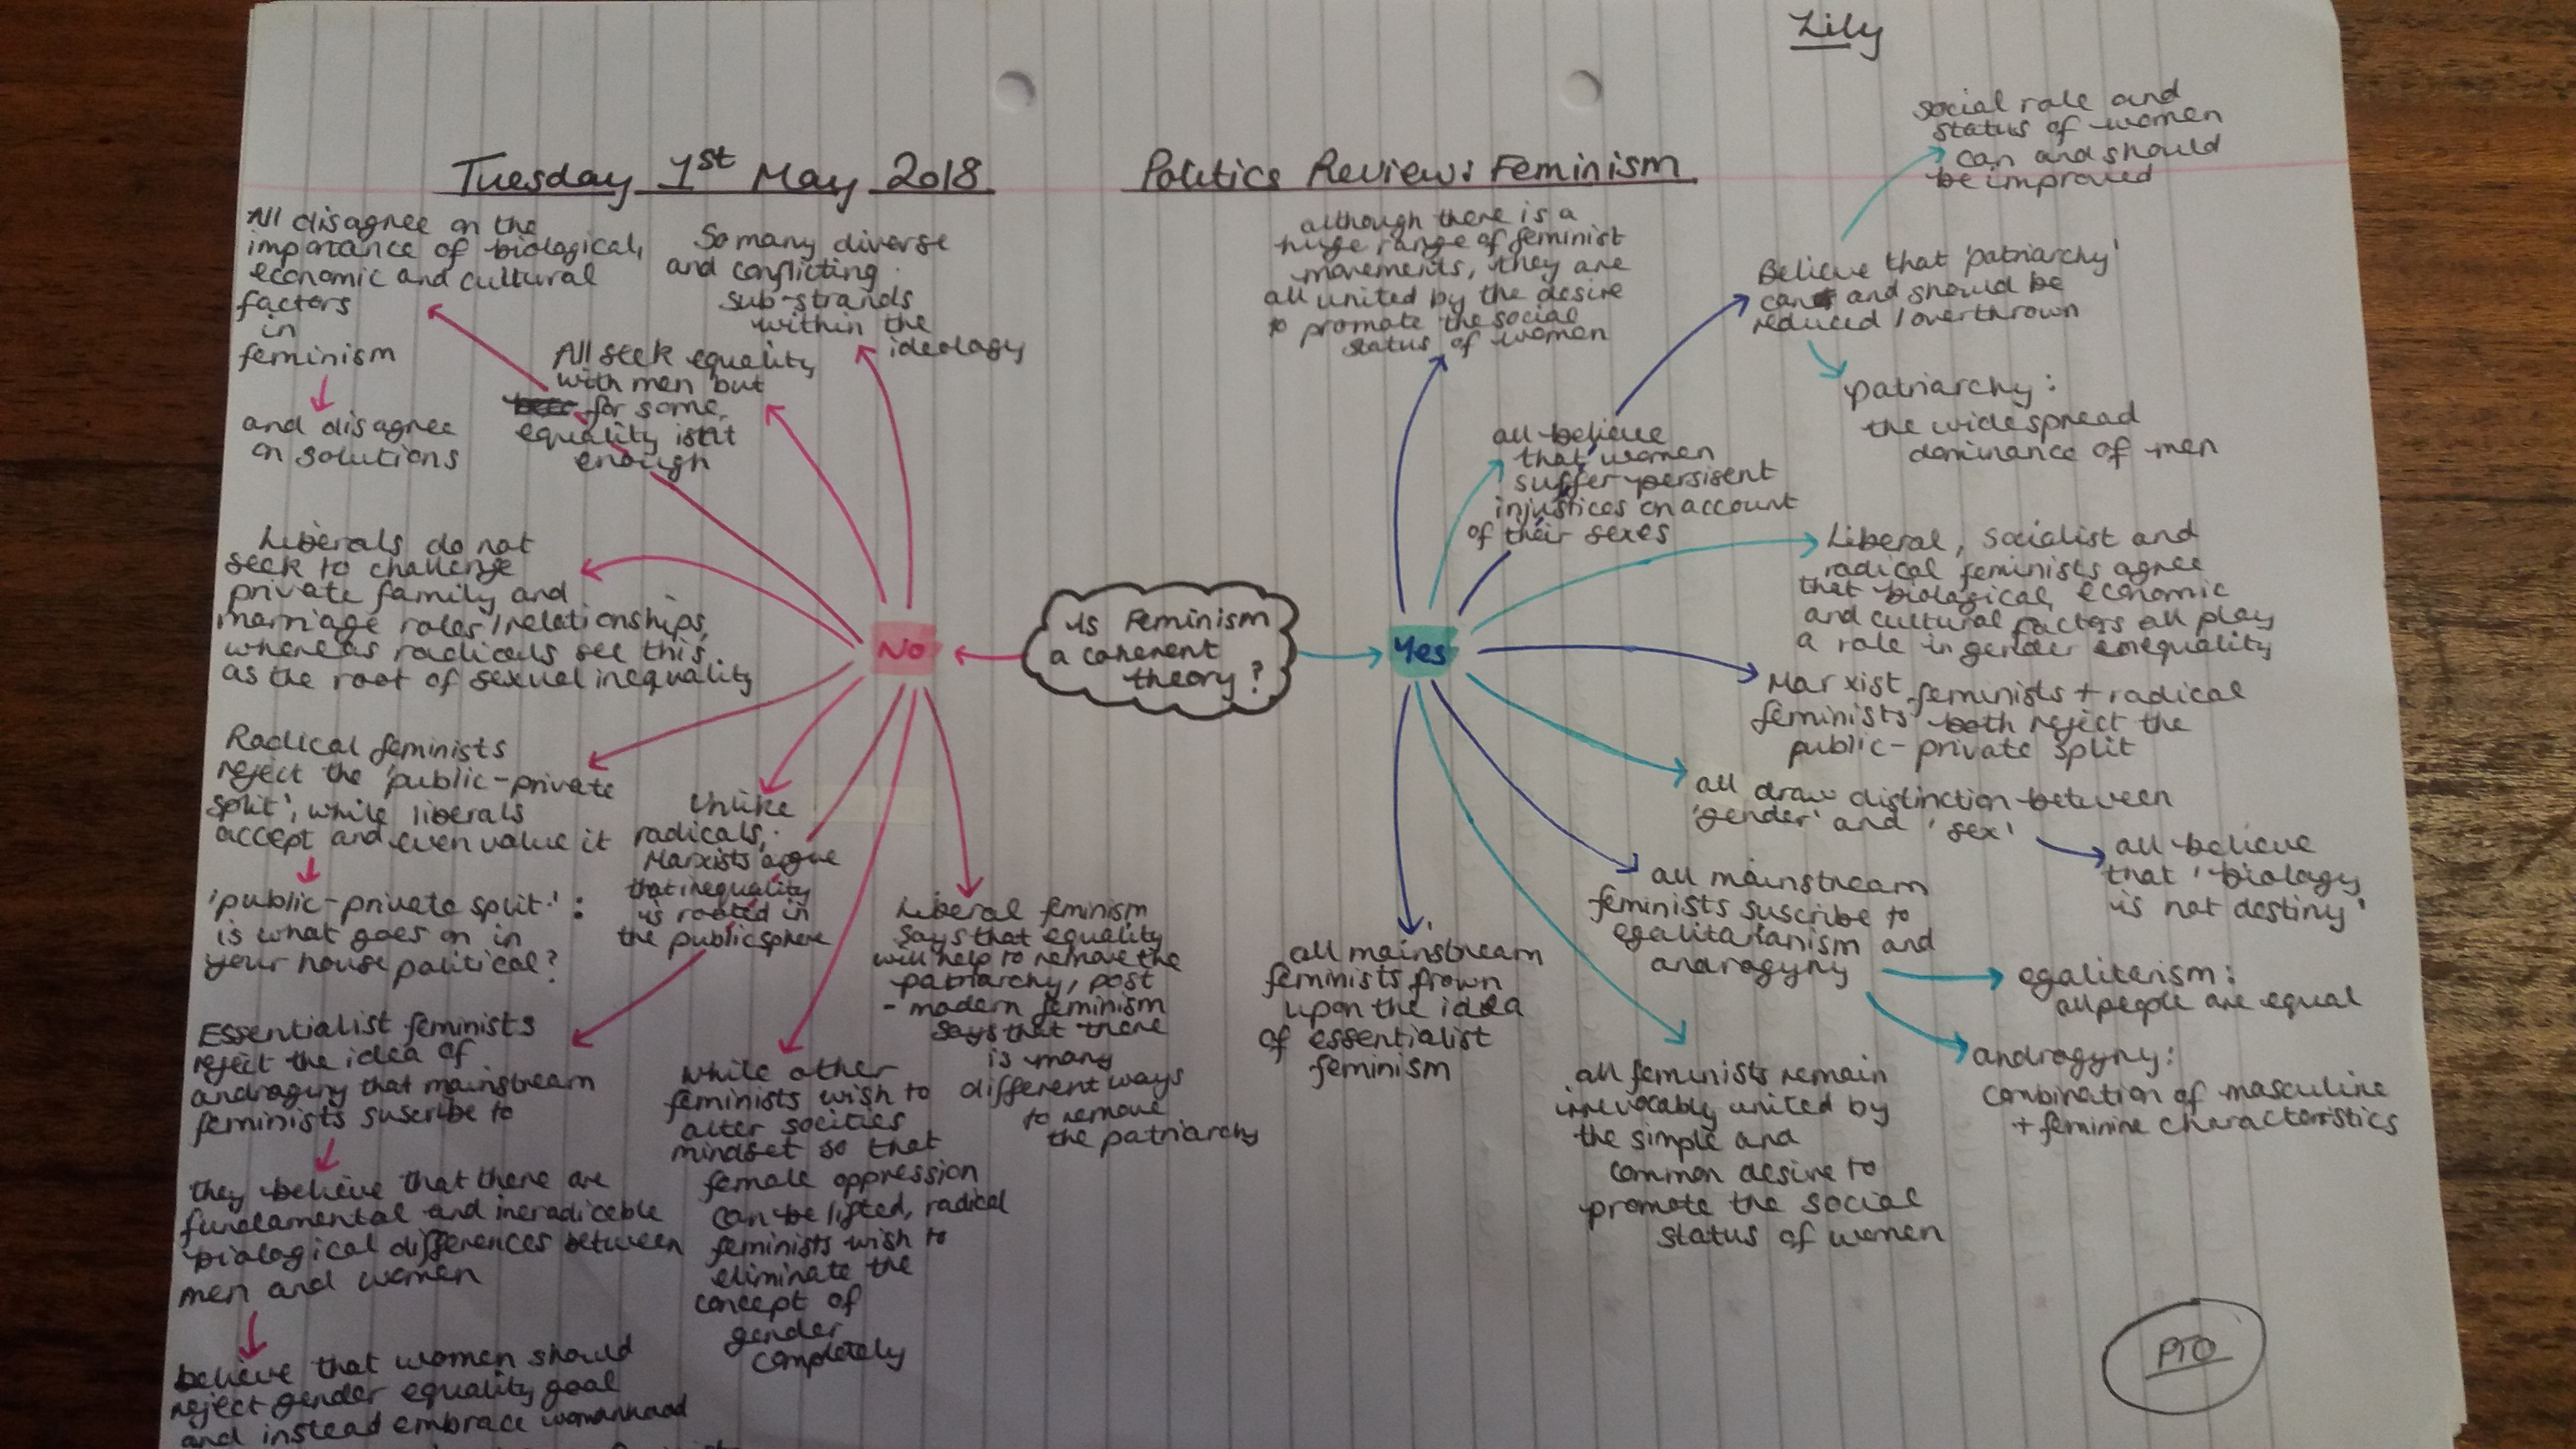 Lily
Tuesday 1st May 2018
Politics Review: Feminism
All disagree on the
importance of biological,
economic and cultural
factors
in
feminism
and disagree
on solutions
So many diverse
and conflicting
sub-strands
within the
ideology
All seek equality
with men but
for some,
equality isn't
enough
Liberals do not
seek to challenge
private family and
marriage roles/relationships,
whereas radicals see this
as the root of sexual inequality
Radical feminists
reject the 'public-private
split', while liberals
accept and even value it
'public-private split':
is what goes on in
your house political?
Unlike
radicals,
Marxists argue
that inequality
is rooted in
the public sphere
Essentialist feminists
reject the idea of
androginy that mainstream
feminists suscribe to
they believe that there are
fundamental and ineradicable
biological differences between
men and women
believe that women should
reject gender equality goal
and instead embrace womanhood
While other
feminists wish to
alter socities
mindset so that
female oppression
can be lifted, radical
feminists wish to
eliminate the
concept of
gender
completely
Liberal feminism
says that equality
will help to remove the
patriarchy, post
-modern feminism
says that there
is many
different ways
to remove
the patriarchy
No
Is Feminism
a coherent
theory?
Yes
although there is a
huge range of feminist
movements, they are
all united by the desire
to promote the social
status of women
all believe
that women
suffer persisent
injustices on account
of their sexes
Believe that 'patriarchy'
can and should be
reduced/overthrown
social role and
status of women
can and should
be improved
patriarchy:
the widespread
dominance of men
Liberal, socialist and
radical feminists agree
that biological, economic
and cultural factors all play
a role in gender inequality
Marxist feminists + radical
feminists both reject the
public-private split
all draw distinction between
'gender' and 'sex'
all believe
that 'biology
is not destiny'
all mainstream
feminists suscribe to
egalitarianism and
androgyny
egalitarism:
all people are equal
androgyny:
combination of masculine
+ feminine characteristics
all feminists remain
irrevocably united by
the simple and
common desire to
promote the social
status of women
all mainstream
feminists frown
upon the idea
of essentialist
feminism
PTO